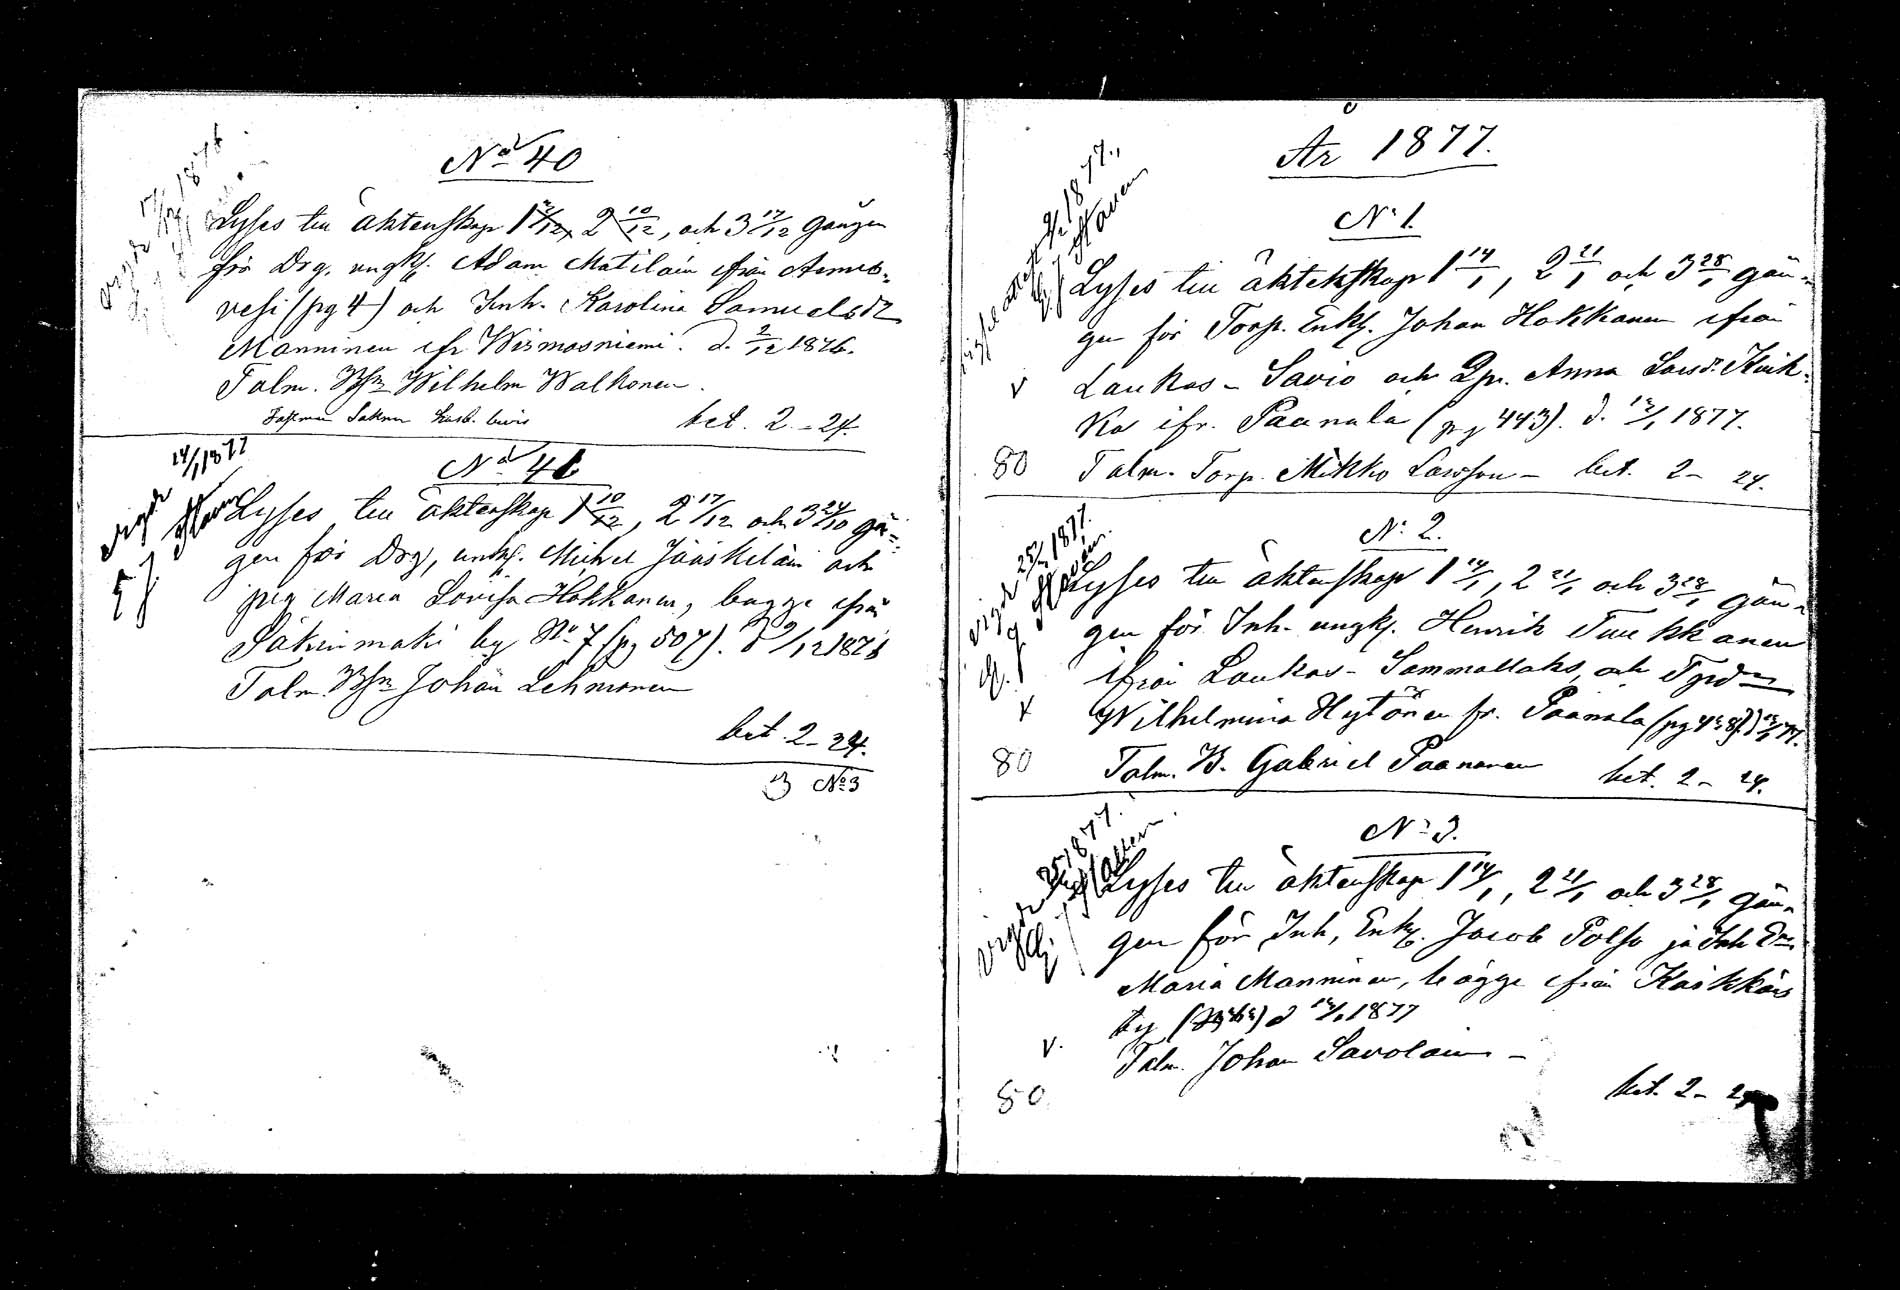 No 40
Lyses till äktenskap 1 3/12, 2 10/12, och 3 17/12 gången
för Drg. ungk. Adam Matilain ifrån Armis-
vesi (pg 4) och Inh. Karolina Samuelsdr
Manninen ifr Wirmasniemi. d. 2/12 1876.
Talm. Bsn Wilhelm Walkonen.
bet. 2-24.
vigde 14/1 1877
No 41
Lyses till äktenskap 1 10/12, 2 17/12 och 3 24/10 gån-
gen för Drg, unkg. Michel Jääskeläin och
pig Maria Lovisa Hokkanen, bägge ifrån
by No 7 (pg 507). d 9/12 1876
Talm. Bsn Johan Lehmonen
bet. 2-24.
3 No 3
År 1877.
2/2 1877.
No 1.
Lyses till äktekskap 1 14/1, 2 21/1 och 3 28/1 gån-
gen för Torp. Enkl. Johan Hokkanen ifrån
v Laukas-Savio och Qpr. Anna Larsdr. Kuik-
ka ifr. Paanala (pg 443). d. 13/1 1877.
80 Talm. Torp. Mikko Larsson - bet. 2-24.
vigde 25/2 1877.
No 2.
Lyses till äktenskap 1 14/1, 2 21/1 och 3 28/1 gån-
gen för Inh. ungk. Henrik Tuukkanen
ifrån Laukas-Sammallaks, och
x Wilhelmina Hytönen fr. Paanala 13/1 77.
80 Talm. B. Gabriel Paananen bet. 2-24.
vigde 1877.
No 3.
Lyses till äktenskap 1 14/1, 2 21/1 och 3 28/1 gån-
gen för Inh, Enkg. Jacob Polso ja Inh
Maria Manninen, bägge ifrån Kärkkäis
by d 13/1 1877
v. Talm. Johan Savolain -
80 bet. 2-